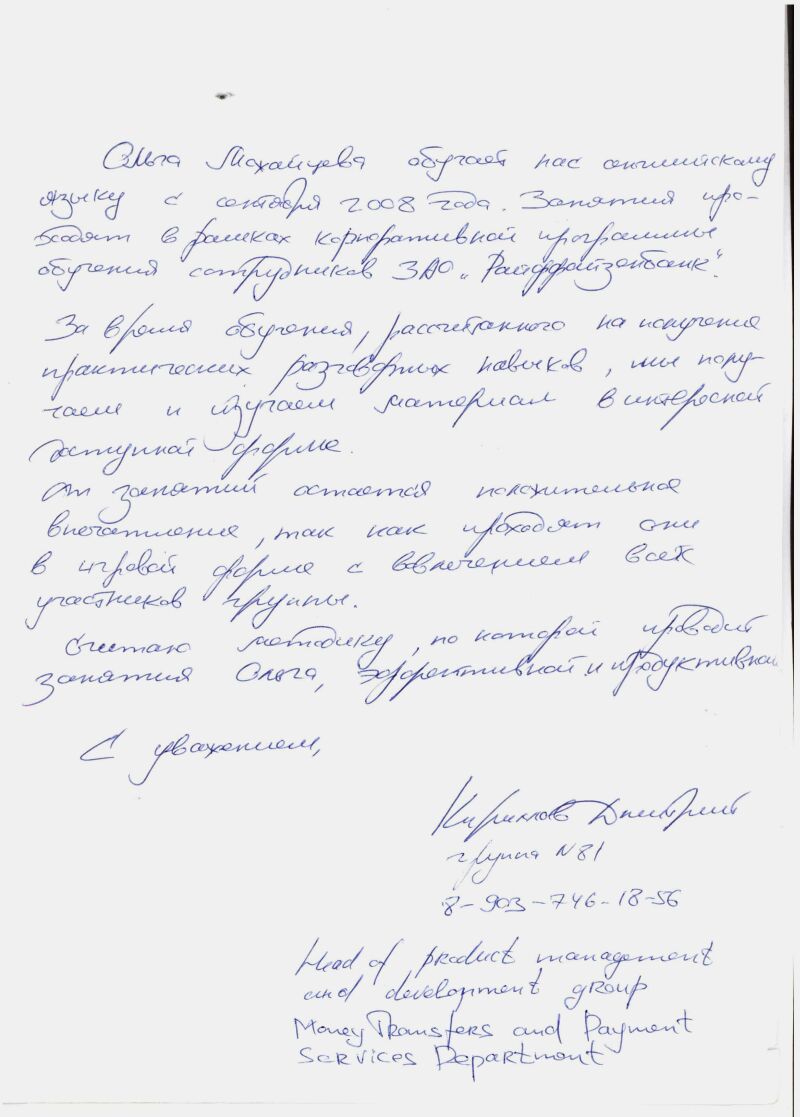 Ольга Махайцева обучает нас английскому
языку с сентября 2008 года. Занятия про-
ходят в рамках корпоративной программы
обучения сотрудников ЗАО „Райффайзенбанк".
За время обучения, рассчитанного на получение
практических разговорных навыков, мы полу-
чаем и изучаем материал в интересной
доступной форме.
От занятий остается положительное
впечатление, так как проходят они
в игровой форме с вовлечением всех
участников группы.
Считаю методику, по которой проводит
занятия Ольга, эффективной и продуктивной
С уважением,
Дмитрий
группа N81
8-903-746-18-56
Head of product management
and development group
Money Transfers and Payment
Services Department